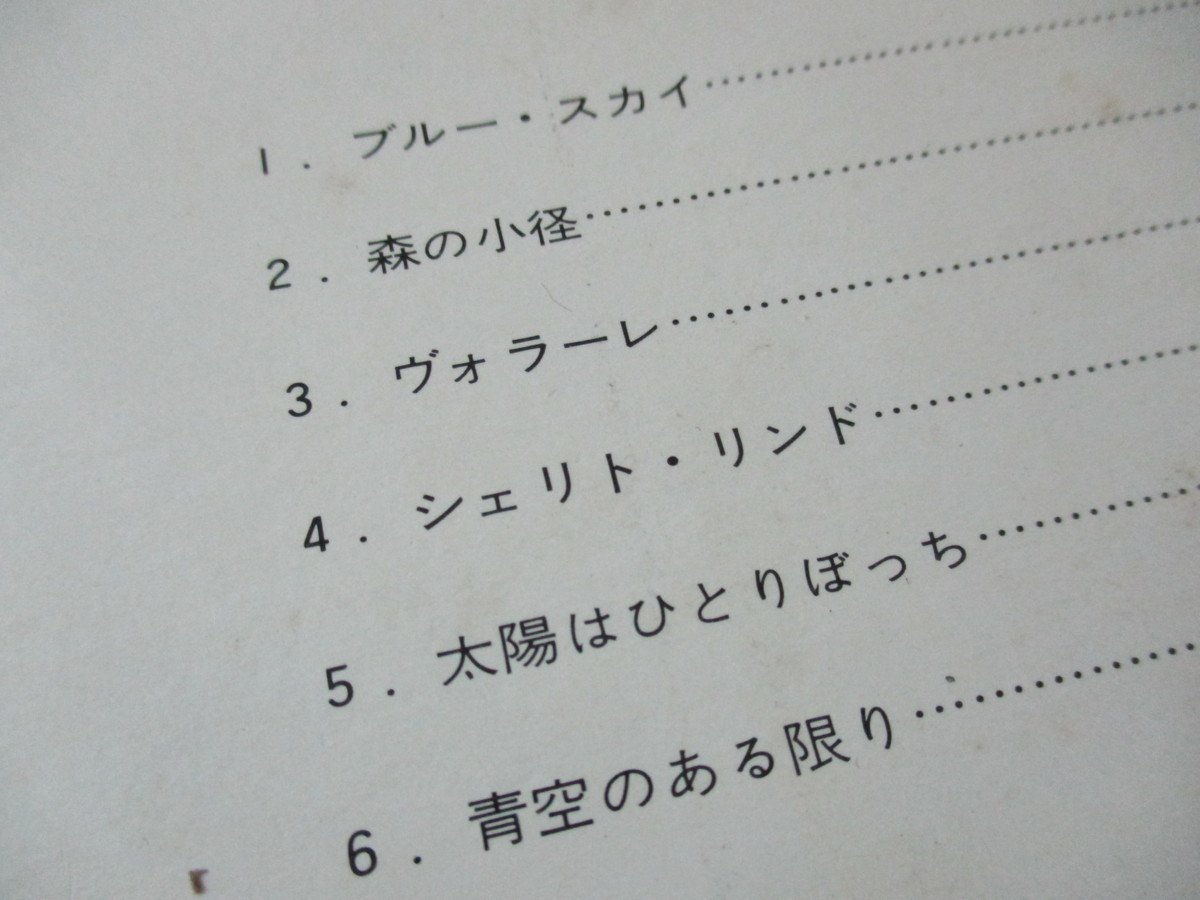 1. ブルー・スカイ………………………
2. 森の小径………………………
3. ヴォラーレ………………………
4. シェリト・リンド………………
5. 太陽はひとりぼっち…………
6. 青空のある限り………………